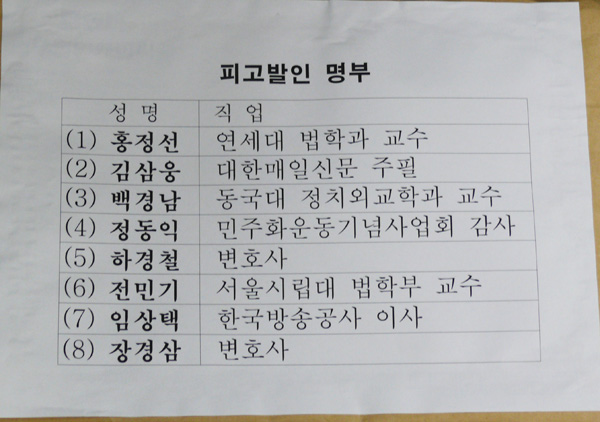 피고발인 명부
성 명 직 업
(1) 홍정선 연세대 법학과 교수
(2) 김삼웅 대한매일신문 주필
(3) 백경남 동국대 정치외교학과 교수
(4) 정동익 민주화운동기념사업회 감사
(5) 하경철 변호사
(6) 전민기 서울시립대 법학부 교수
(7) 임상택 한국방송공사 이사
(8) 장경삼 변호사